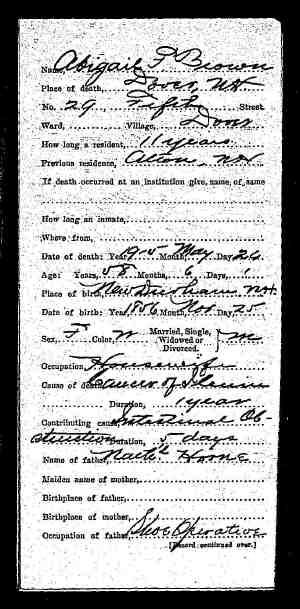 Name, Abigail P Brown
Place of death, Dover, NH
No. 29, Fifth Street
Ward, Village, Dover
How long a resident, 11 years
Previous residence, Alton, NH
If death occurred at an institution give, name, of same
How long an inmate,
Where from,
Date of death: Year, 1915 Month, May Day, 26
Age: Years, 58 Months, 6 Days, 1
Place of birth, New Durham NH
Date of birth: Year, 1856 Month, Nov Day, 25
Sex, F Color, W Married, Single, Widowed or Divorced. } M
Occupation, Housewife
Cause of death, Cancer of Uterus
Duration, 1 year
Contributing cause, Intestinal Ob-
struction Duration, 5 days
Name of father, Horne
Maiden name of mother,
Birthplace of father,
Birthplace of mother,
Occupation of father, Shoe Operative
[Record continued over.]